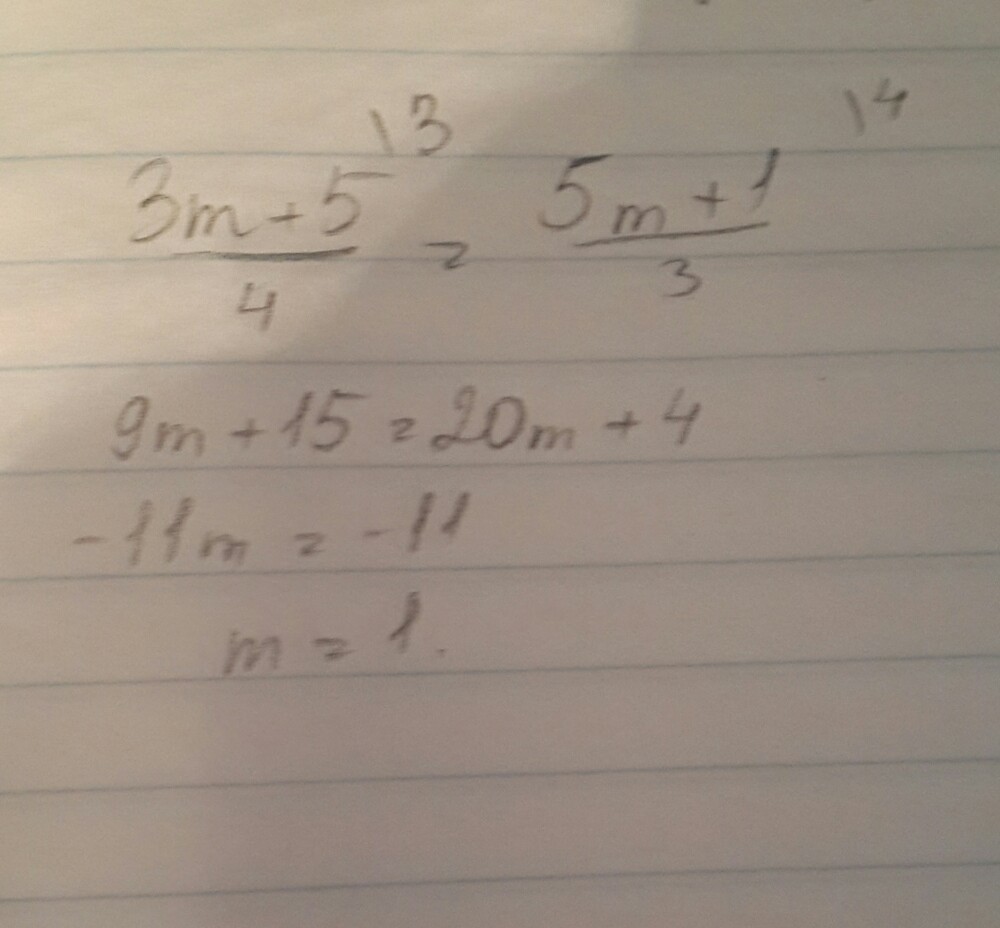 \3 \4
3m+5 = 5m+1
4 3
9m+15=20m+4
-11m=-11
m=1.